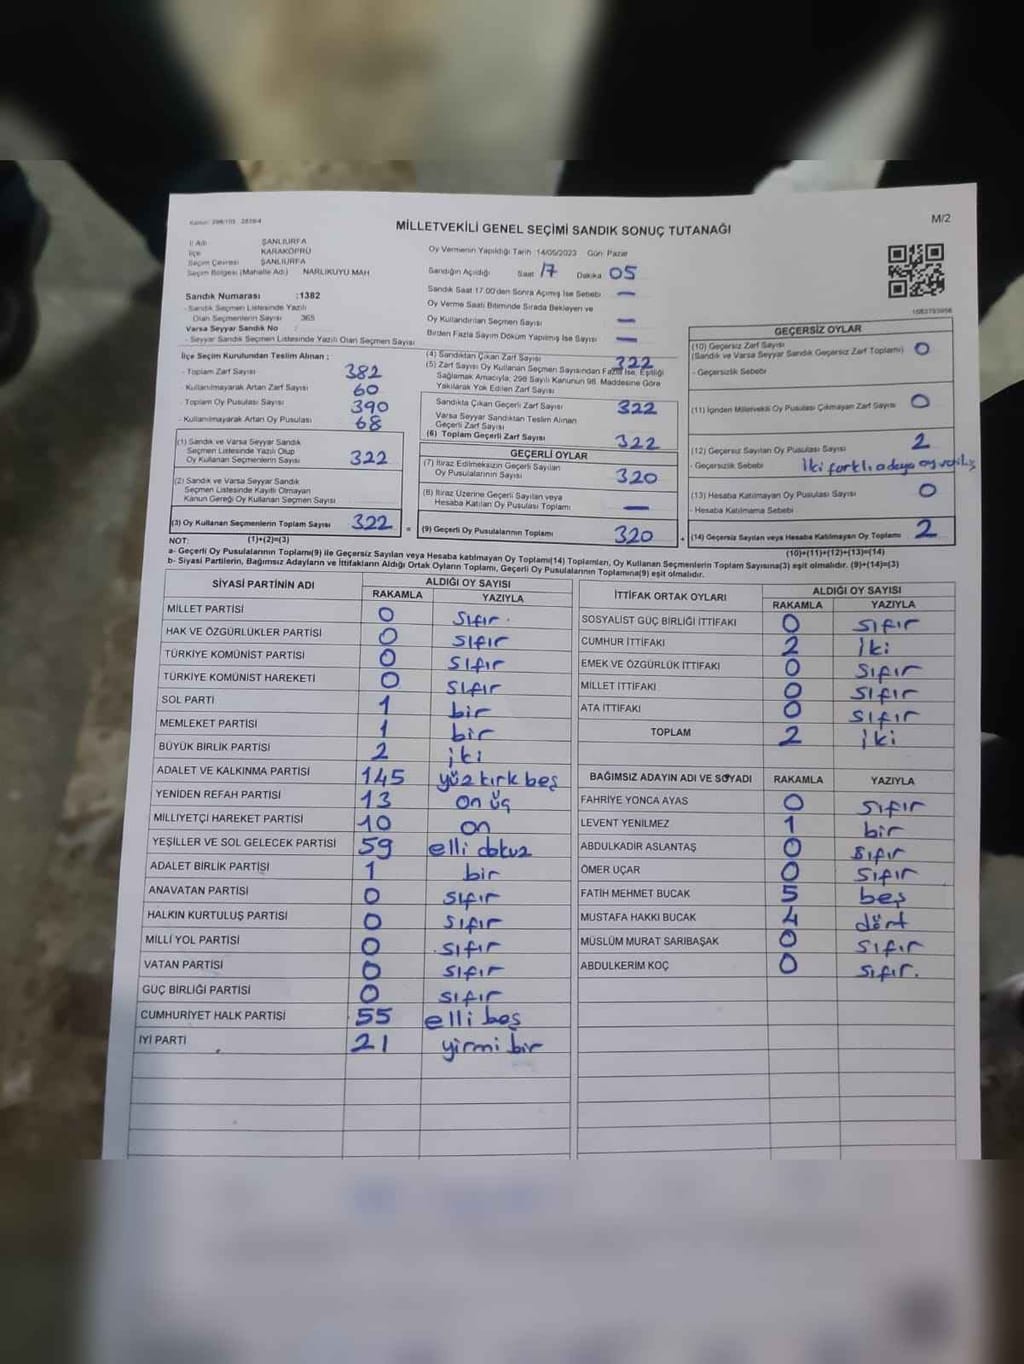 MİLLETVEKİLİ GENEL SEÇİMİ SANDIK SONUÇ TUTANAĞI
M/2
İl Adı ŞANLIURFA
İlçe KARAKÖPRÜ
Seçim Çevresi ŞANLIURFA
Seçim Bölgesi (Mahalle Adı) NARLIKUYU MAH
Sandık Numarası :1382
- Sandık Seçmen Listesinde Yazılı
Olan Seçmenlerin Sayısı 365
Varsa Seyyar Sandık No :
- Seyyar Sandık Seçmen Listesinde Yazılı Olan Seçmen Sayısı
Oy Vermenin Yapıldığı Tarih 14/05/2023 Gün Pazar
Sandığın Açıldığı Saat 17 Dakika 05
Sandık Saat 17.00'den Sonra Açılmış İse Sebebi —
Oy Verme Saati Bitiminde Sırada Bekleyen ve
Oy Kullandırılan Seçmen Sayısı —
Birden Fazla Sayım Döküm Yapılmış İse Sayısı —
İlçe Seçim Kurulundan Teslim Alınan :
- Toplam Zarf Sayısı 382
- Kullanılmayarak Artan Zarf Sayısı 60
- Toplam Oy Pusulası Sayısı 390
- Kullanılmayarak Artan Oy Pusulası 68
(1) Sandık ve Varsa Seyyar Sandık
Seçmen Listesinde Yazılı Olup
Oy Kullanan Seçmenlerin Sayısı 322
(2) Sandık ve Varsa Seyyar Sandık
Seçmen Listesinde Kayıtlı Olmayan
Kanun Gereği Oy Kullanan Seçmen Sayısı
(3) Oy Kullanan Seçmenlerin Toplam Sayısı 322
(4) Sandıktan Çıkan Zarf Sayısı 322
(5) Zarf Sayısı Oy Kullanan Seçmen Sayısından Fazla İse, Eşitliği
Sağlamak Amacıyla, 298 Sayılı Kanunun 98. Maddesine Göre
Yakılarak Yok Edilen Zarf Sayısı
Sandıkta Çıkan Geçerli Zarf Sayısı 322
Varsa Seyyar Sandıktan Teslim Alınan
Geçerli Zarf Sayısı
(6) Toplam Geçerli Zarf Sayısı 322
GEÇERLİ OYLAR
(7) İtiraz Edilmeksizin Geçerli Sayılan
Oy Pusulalarının Sayısı 320
(8) İtiraz Üzerine Geçerli Sayılan veya
Hesaba Katılan Oy Pusulası Toplamı —
= (9) Geçerli Oy Pusulalarının Toplamı 320
GEÇERSİZ OYLAR
(10) Geçersiz Zarf Sayısı 0
(Sandık ve Varsa Seyyar Sandık Geçersiz Zarf Toplamı)
- Geçersizlik Sebebi
(11) İçinden Milletvekili Oy Pusulası Çıkmayan Zarf Sayısı 0
(12) Geçersiz Sayılan Oy Pusulası Sayısı 2
- Geçersizlik Sebebi İki farklı adaya oy
(13) Hesaba Katılmayan Oy Pusulası Sayısı 0
- Hesaba Katılmama Sebebi
+ (14) Geçersiz Sayılan veya Hesaba Katılmayan Oy Toplamı 2
NOT: (1)+(2)=(3)
(10)+(11)+(12)+(13)=(14)
a- Geçerli Oy Pusulalarının Toplamı(9) ile Geçersiz Sayılan veya Hesaba katılmayan Oy Toplamı(14) Toplamları, Oy Kullanan Seçmenlerin Toplam Sayısına(3) eşit olmalıdır. (9)+(14)=(3)
b- Siyasi Partilerin, Bağımsız Adayların ve İttifakların Aldığı Ortak Oyların Toplamı, Geçerli Oy Pusulalarının Toplamına(9) eşit olmalıdır.
SİYASİ PARTİNİN ADI
ALDIĞI OY SAYISI
RAKAMLA YAZIYLA
MİLLET PARTİSİ 0 sıfır.
HAK VE ÖZGÜRLÜKLER PARTİSİ 0 sıfır
TÜRKİYE KOMÜNİST PARTİSİ 0 sıfır
TÜRKİYE KOMÜNİST HAREKETİ 0 sıfır
SOL PARTİ 1 bir
MEMLEKET PARTİSİ 1 bir
BÜYÜK BİRLİK PARTİSİ 2 iki
ADALET VE KALKINMA PARTİSİ 145 yüz kırk beş
YENİDEN REFAH PARTİSİ 13 on üç
MİLLİYETÇİ HAREKET PARTİSİ 10 on
YEŞİLLER VE SOL GELECEK PARTİSİ 59 elli dokuz
ADALET BİRLİK PARTİSİ 1 bir
ANAVATAN PARTİSİ 0 sıfır
HALKIN KURTULUŞ PARTİSİ 0 sıfır
MİLLİ YOL PARTİSİ 0 sıfır
VATAN PARTİSİ 0 sıfır
GÜÇ BİRLİĞİ PARTİSİ 0 sıfır
CUMHURİYET HALK PARTİSİ 55 elli beş
İYİ PARTİ 21 yirmi bir
İTTİFAK ORTAK OYLARI
ALDIĞI OY SAYISI
RAKAMLA YAZIYLA
SOSYALİST GÜÇ BİRLİĞİ İTTİFAKI 0 sıfır
CUMHUR İTTİFAKI 2 iki
EMEK VE ÖZGÜRLÜK İTTİFAKI 0 sıfır
MİLLET İTTİFAKI 0 sıfır
ATA İTTİFAKI 0 sıfır
TOPLAM 2 iki
BAĞIMSIZ ADAYIN ADI VE SOYADI RAKAMLA YAZIYLA
FAHRİYE YONCA AYAS 0 sıfır
LEVENT YENİLMEZ 1 bir
ABDULKADİR ASLANTAŞ 0 sıfır
ÖMER UÇAR 0 sıfır
FATİH MEHMET BUCAK 5 beş
MUSTAFA HAKKI BUCAK 4 dört
MÜSLÜM MURAT SARIBAŞAK 0 sıfır
ABDULKERİM KOÇ 0 sıfır.